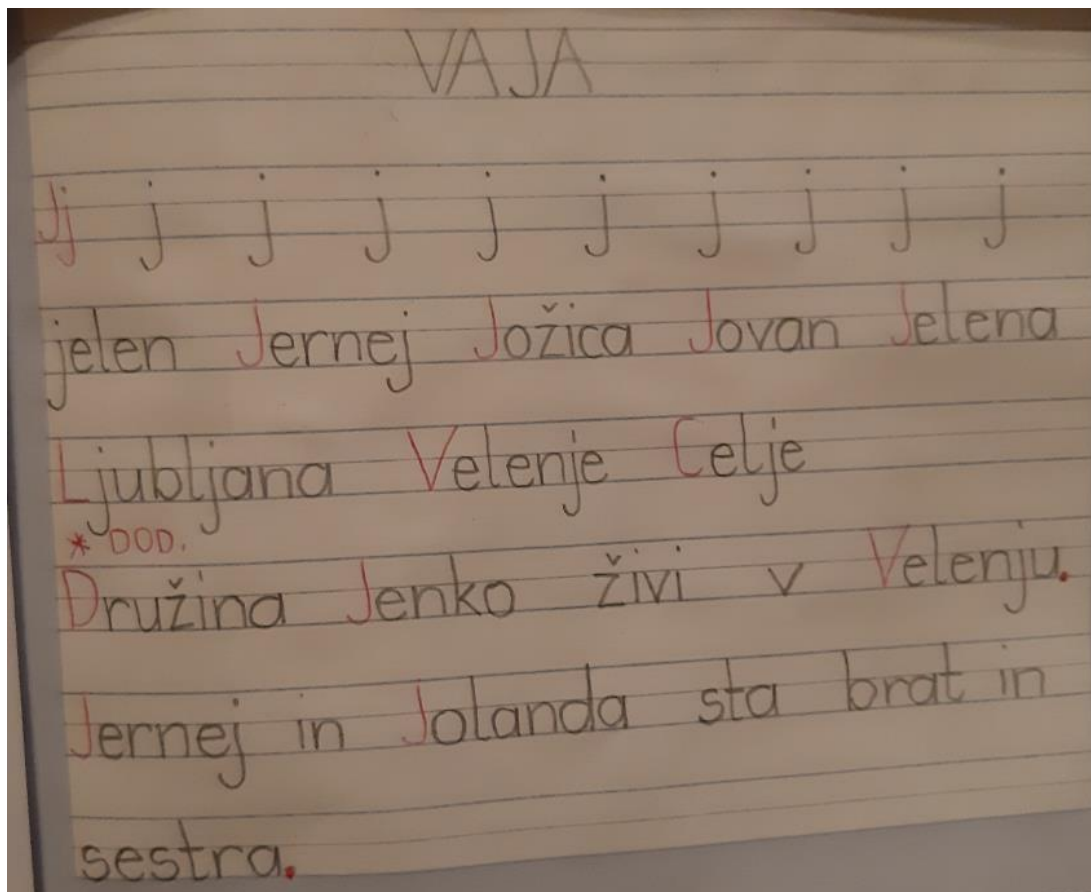 VAJA
Jj j j j j j j j j j
jelen Jernej Jožica Jovan Jelena
Ljubljana Velenje Celje
* DOD.
Družina Jenko živi v Velenju.
Jernej in Jolanda sta brat in
sestra.